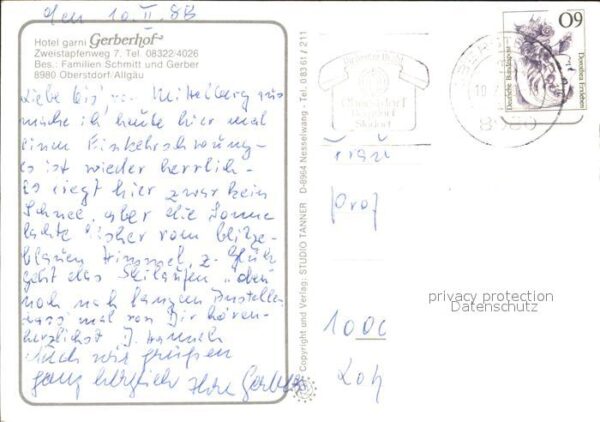 den 10.II.88
Hotel garni Gerberhof
Zweistapfenweg 7. Tel. 08322/4026
Bes.: Familien Schmitt und Gerber
8980 Oberstdorf/Allgäu
Mittelberg aus
mache ich heute hier mal
einen Einkehrschwung-
es ist wieder herrlich-
es liegt hier zwar kein
Schnee, aber die Sonne
lachte bisher vom blitze-
blauen Himmel, z. Glück
geht das Skilaufen "oben
noch nach langem Anstellen
lass mal von Dir hören-
herzlichst
Auch wir grüßen
ganz herzlich Ihre Gerber
Copyright und Verlag: STUDIO TANNER D-8964 Nesselwang - Tel. 083 61 / 211
Oberstdorf
8980
60
Deutsche Bundespost
Dorothea Erxleben
Frau
Prof
1000
privacy protection
Datenschutz